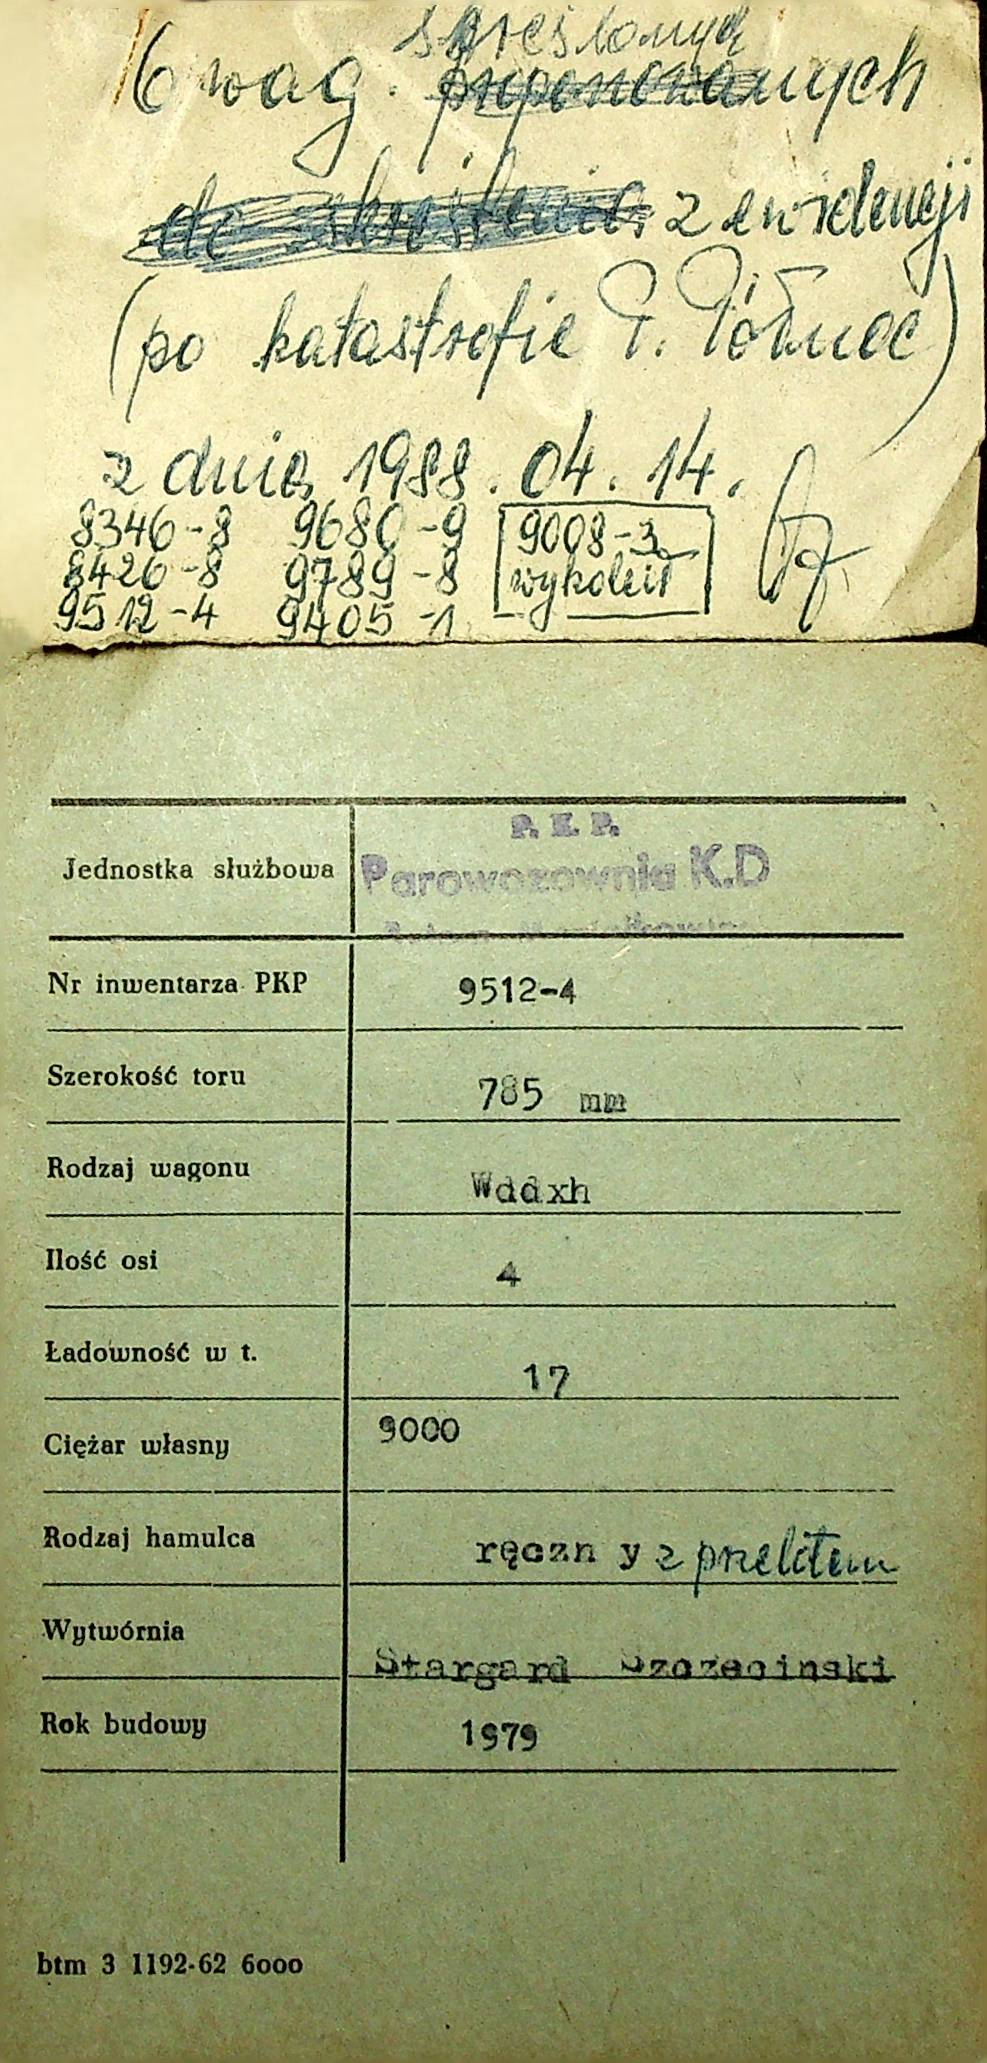 skreślonych
6 wag. proponowanych
do skreślenia z ewidencji
(po katastrofie P. Północ)
z dnia 1988.04.14.
8346-8 9680-9 9008-3
8426-8 9789-8 wykoleił
9512-4 9405-1
P. K. P.
Jednostka służbowa Parowozownia K.D
Nr inwentarza PKP 9512-4
Szerokość toru 785 mm
Rodzaj wagonu Wddxh
Ilość osi 4
Ładowność w t. 17
Ciężar własny 9000
Rodzaj hamulca ręczn y z przelotem
Wytwórnia Stargard Szczecinski
Rok budowy 1979
btm 3 1192-62 6000